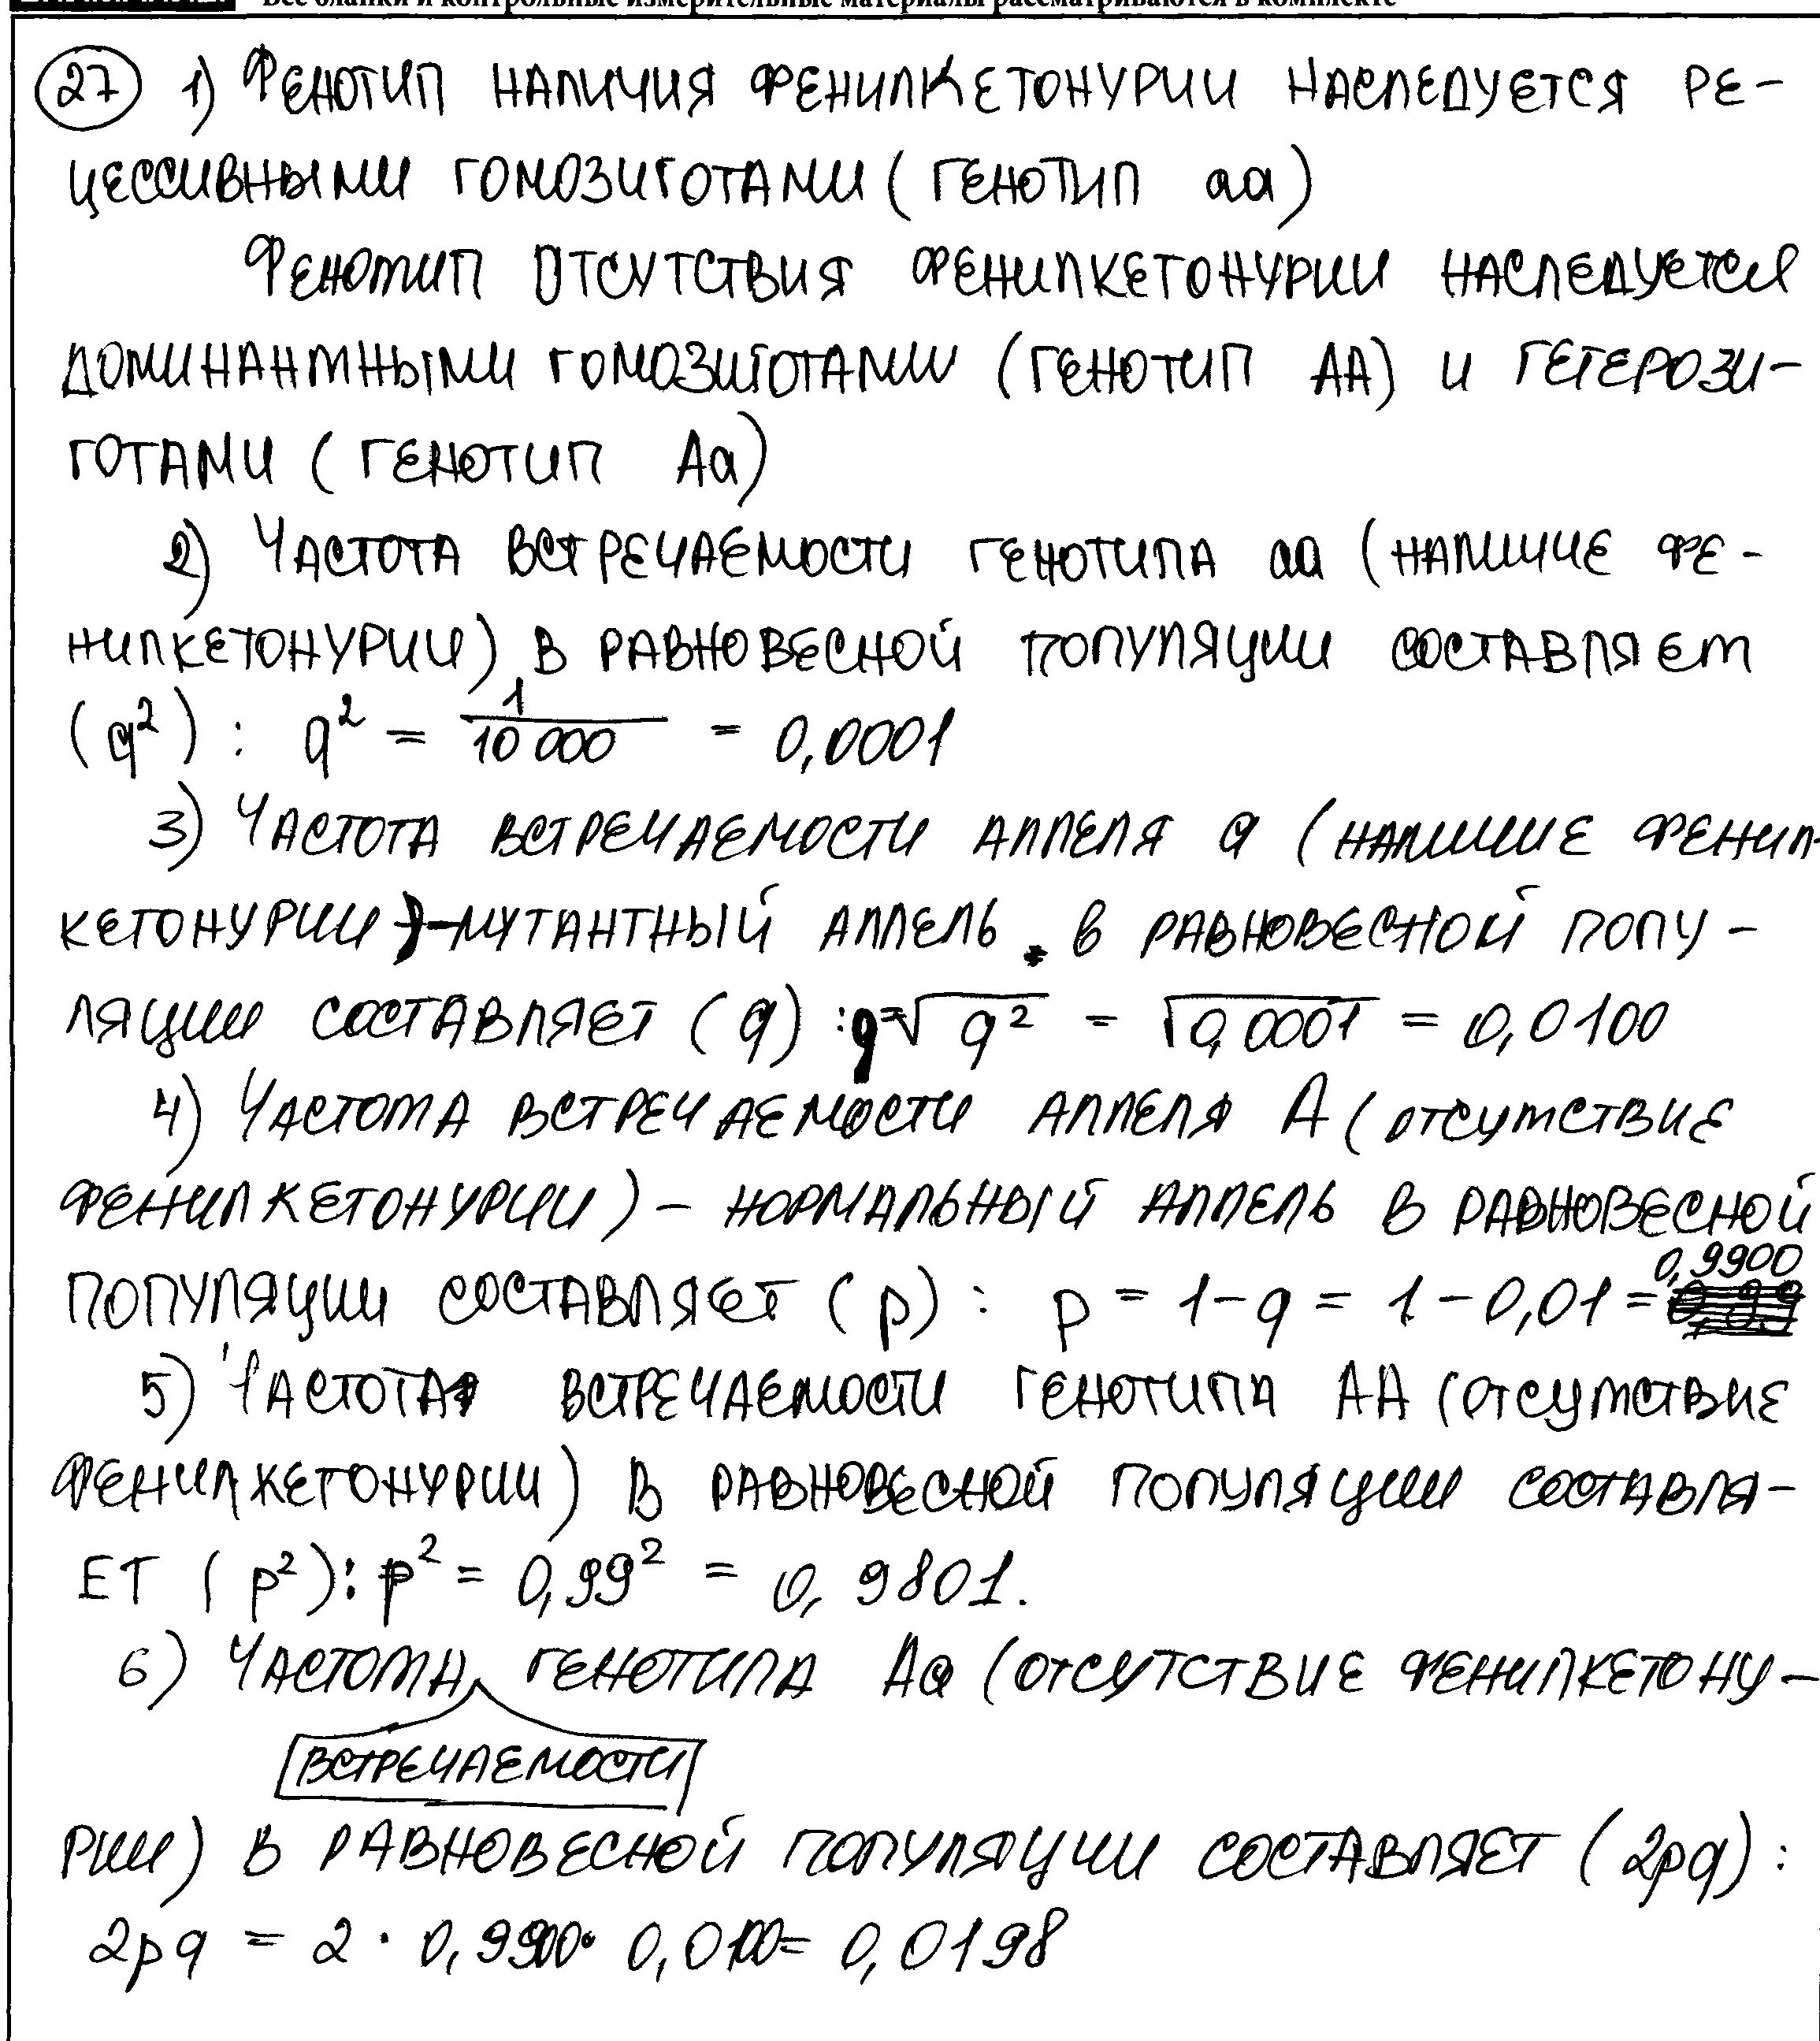 Все бланки и контрольные измерительные материалы рассматриваются в комплекте
27 1) Фенотип наличия фенилкетонурии наследуется ре-
цессивными гомозиготами (генотип аа)
Фенотип отсутствия фенилкетонурии наследуется
доминантными гомозиготами (генотип АА) и гетерози-
готами (генотип Аа)
2) Частота встречаемости генотипа аа (наличие фе-
нилкетонурии) в равновесной популяции составляет
(q²): q² = 1/10 000 = 0,0001
3) Частота встречаемости аллеля а (наличие фенил-
кетонурии)-мутантный аллель в равновесной попу-
ляции составляет (q): q=√q² = √0,0001 = 0,0100
4) Частота встречаемости аллеля А (отсутствие
фенилкетонурии) - нормальный аллель в равновесной
популяции составляет (p): p = 1-q = 1-0,01 = 0,9900
5) Частота встречаемости генотипа АА (отсутствие
фенилкетонурии) в равновесной популяции составля-
ет (p²): p² = 0,99² = 0,9801.
6) Частота генотипа Аа (отсутствие фенилкетону-
встречаемости
рии) в равновесной популяции составляет (2pq):
2pq = 2 · 0,9900 · 0,0100 = 0,0198